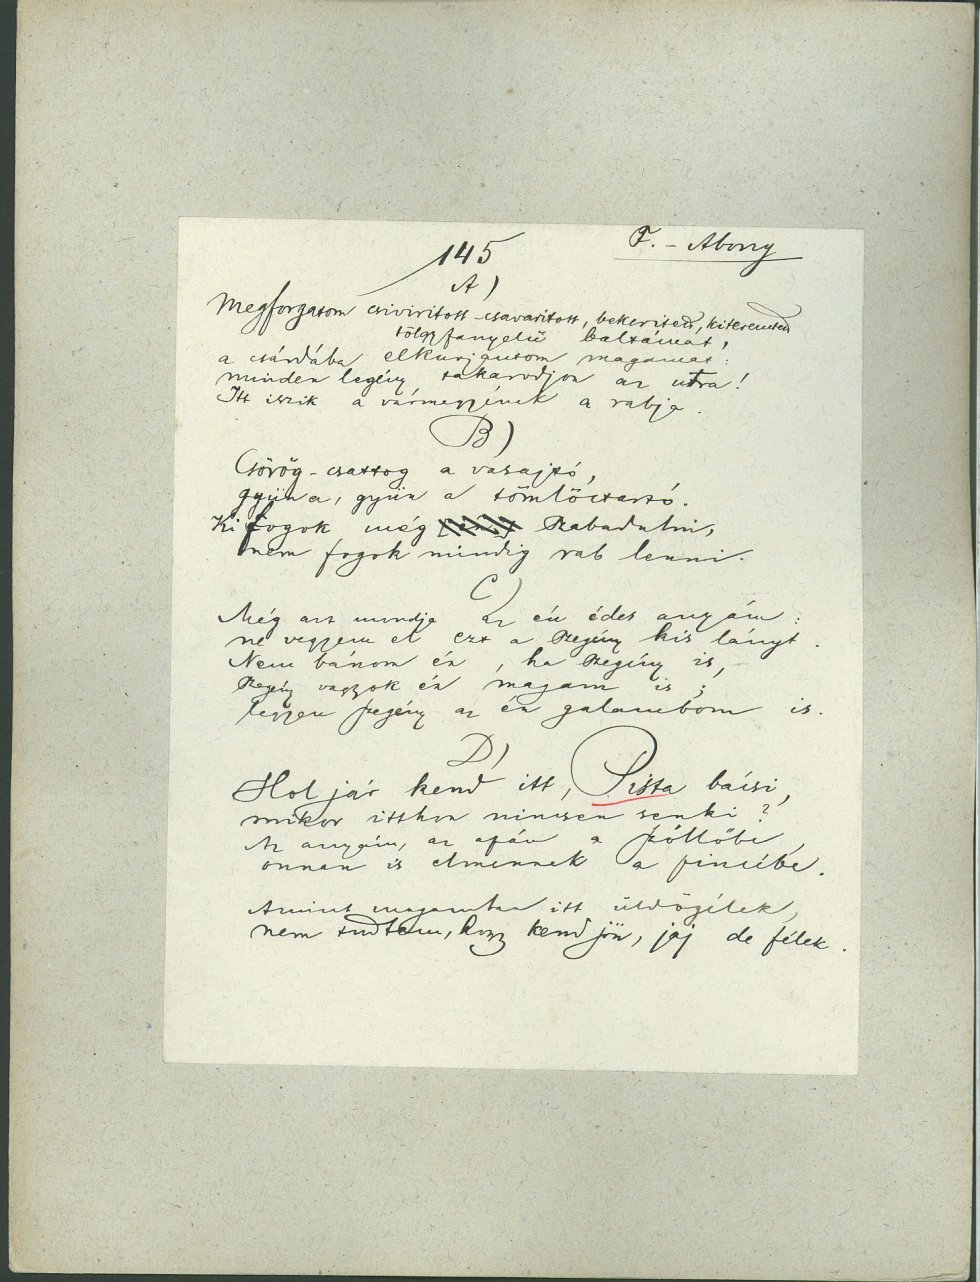 145
F. - Abony
A)
Megforgatom csivirított-csavarított, bekerített, kiteremtett
tölgyfanyelű baltámat,
a csárdába elkurjantom magamat:
minden legény takarodjon az utra!
Itt iszik a vármegyének a rabja.
B)
Csörög-csattog a vasajtó,
gyün a, gyün a tömlöctartó.
Ki fogok még szabadulni,
nem fogok mindig rab lenni.
C)
Még azt mondja az én édes anyám:
ne vegyem el ezt a szegény kis lányt.
Nem bánom én, ha szegény is,
szegény vagyok én magam is;
legyen szegény az én galambom is.
D)
Hol jár kend itt, Pista bácsi,
mikor itthon nincsen senki?
Az anyám, az apám a szöllőbe,
onnan is elmennek a pincébe.
Amint magamban itt üldögélek,
nem tudtam, hogy kend jön, jaj de félek.